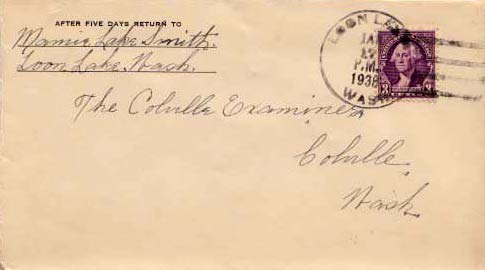 AFTER FIVE DAYS RETURN TO
Mamie Lake Smith.
Loon Lake, Wash.
LOON LAKE
JAN
12
P.M.
1938
WASH.
3 3
The Colville Examiner,
Colville,
Wash.